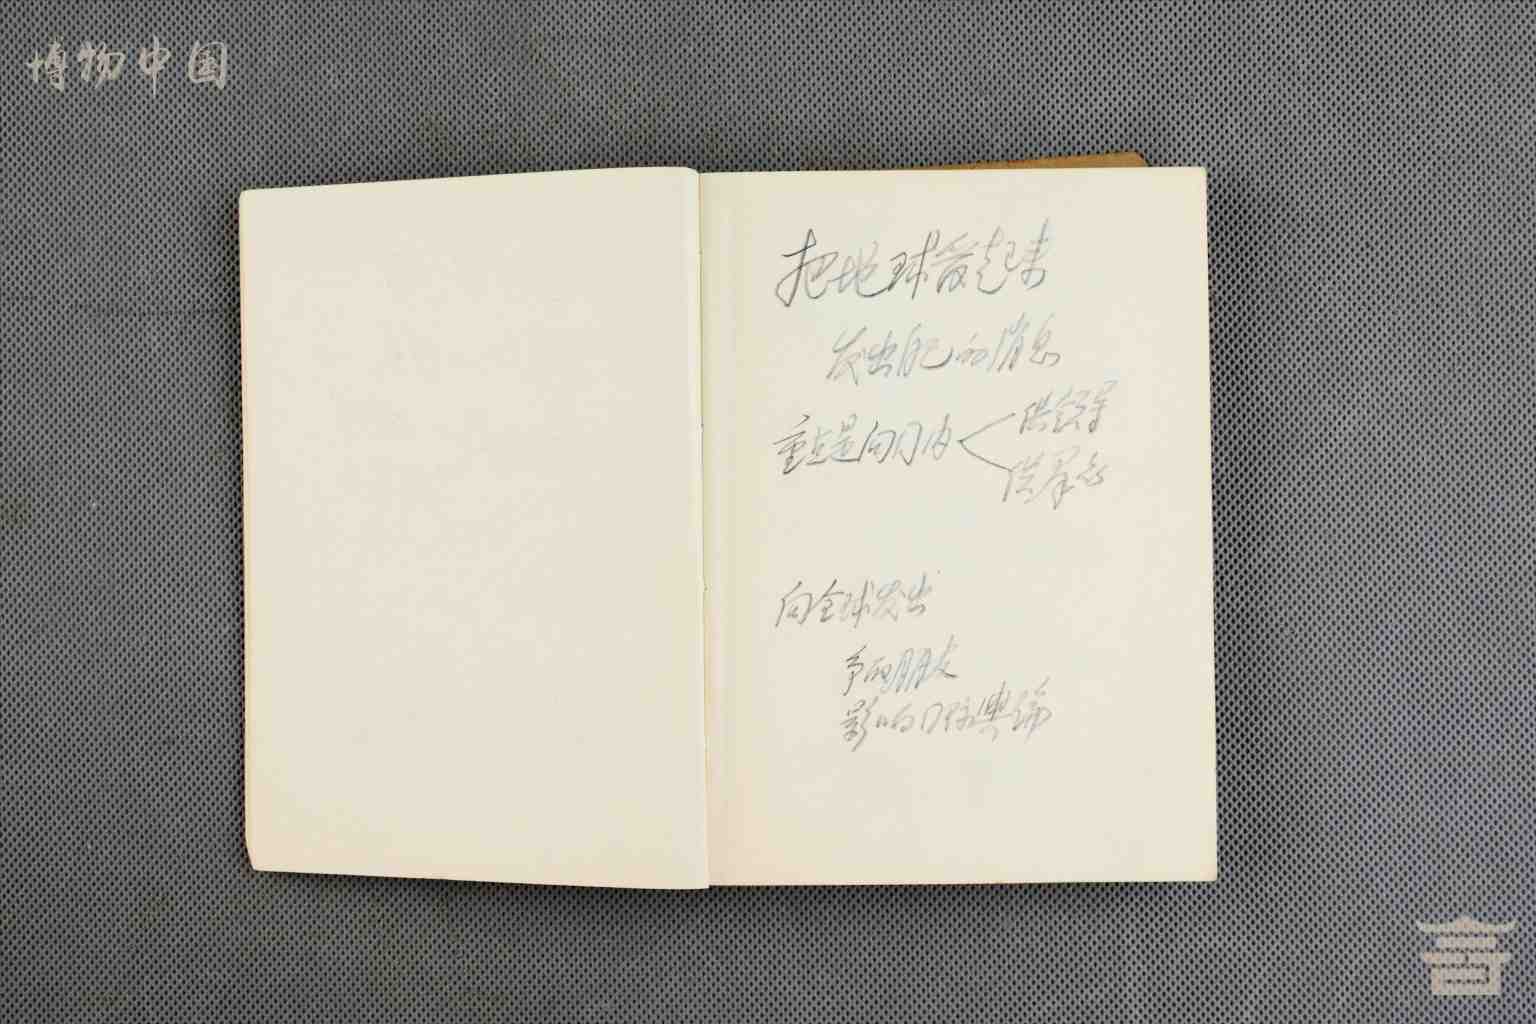 博物中国
把地球管起来
发出自己的消息
重点是向国内
供领导
供群众
向全球发出
争取朋友
影响国际舆论